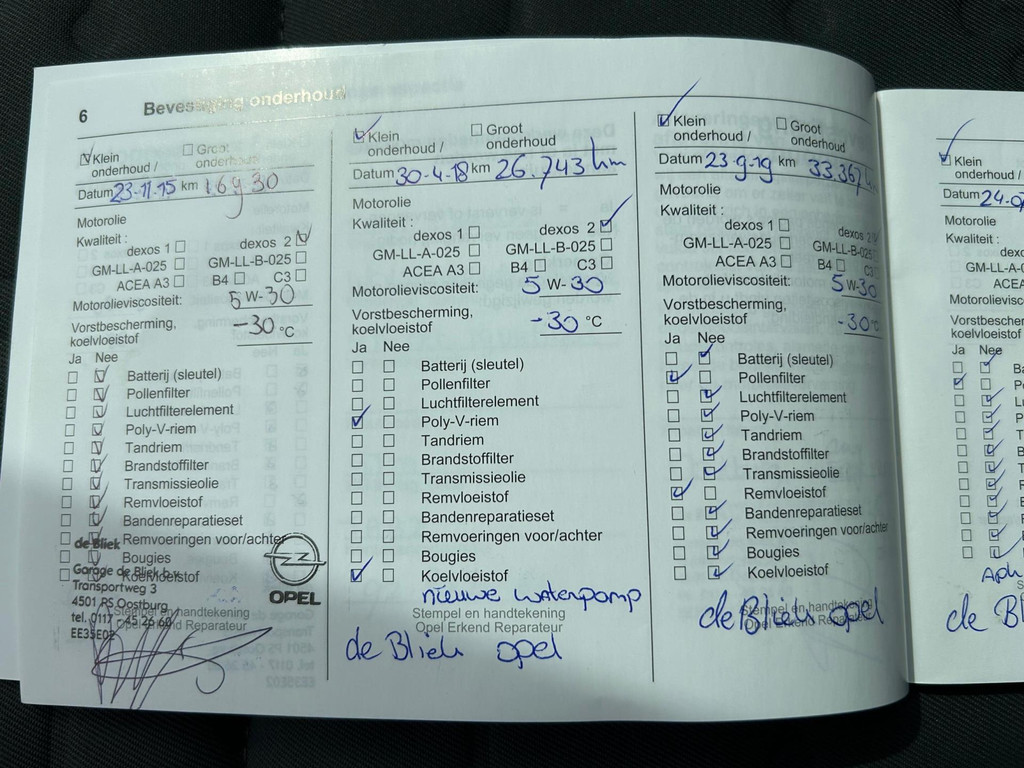 6 Bevestiging onderhoud
Klein onderhoud / Groot onderhoud
Datum 23-11-15 km
Motorolie
Kwaliteit :
dexos 1 dexos 2
GM-LL-A-025 GM-LL-B-025
ACEA A3 B4 C3
Motorolieviscositeit: 5 W-30
Vorstbescherming,
koelvloeistof -30 °C
Ja Nee
Batterij (sleutel)
Pollenfilter
Luchtfilterelement
Poly-V-riem
Tandriem
Brandstoffilter
Transmissieolie
Remvloeistof
Bandenreparatieset
Remvoeringen voor/achter
Bougies
Koelvloeistof
de Bliek
Garage de Bliek b.v.
Transportweg 3
4501 PS Oostburg
tel. 0117 - 45 26 60
EE35E02
Stempel en handtekening
Opel Erkend Reparateur
OPEL
Klein onderhoud / Groot onderhoud
Datum 30-4-18 km 26.743 km
Motorolie
Kwaliteit :
dexos 1 dexos 2
GM-LL-A-025 GM-LL-B-025
ACEA A3 B4 C3
Motorolieviscositeit: 5 W-30
Vorstbescherming,
koelvloeistof -30 °C
Ja Nee
Batterij (sleutel)
Pollenfilter
Luchtfilterelement
Poly-V-riem
Tandriem
Brandstoffilter
Transmissieolie
Remvloeistof
Bandenreparatieset
Remvoeringen voor/achter
Bougies
Koelvloeistof
nieuwe waterpomp
Stempel en handtekening
Opel Erkend Reparateur
de Bliek opel
Klein onderhoud / Groot onderhoud
Datum 23-9-19 km 33.367
Motorolie
Kwaliteit :
dexos 1 dexos 2
GM-LL-A-025 GM-LL-B-025
ACEA A3 B4 C3
Motorolieviscositeit: 5 W-30
Vorstbescherming,
koelvloeistof -30 °C
Ja Nee
Batterij (sleutel)
Pollenfilter
Luchtfilterelement
Poly-V-riem
Tandriem
Brandstoffilter
Transmissieolie
Remvloeistof
Bandenreparatieset
Remvoeringen voor/achter
Bougies
Koelvloeistof
Stempel en handtekening
Opel Erkend Reparateur
de Bliek opel
Klein
onderhoud /
Datum 24-0
Motorolie
Kwaliteit :
GM-LL-A-0
ACEA
Motorolievisc
Vorstbescherm
koelvloeistof
Ja Nee
de Bl